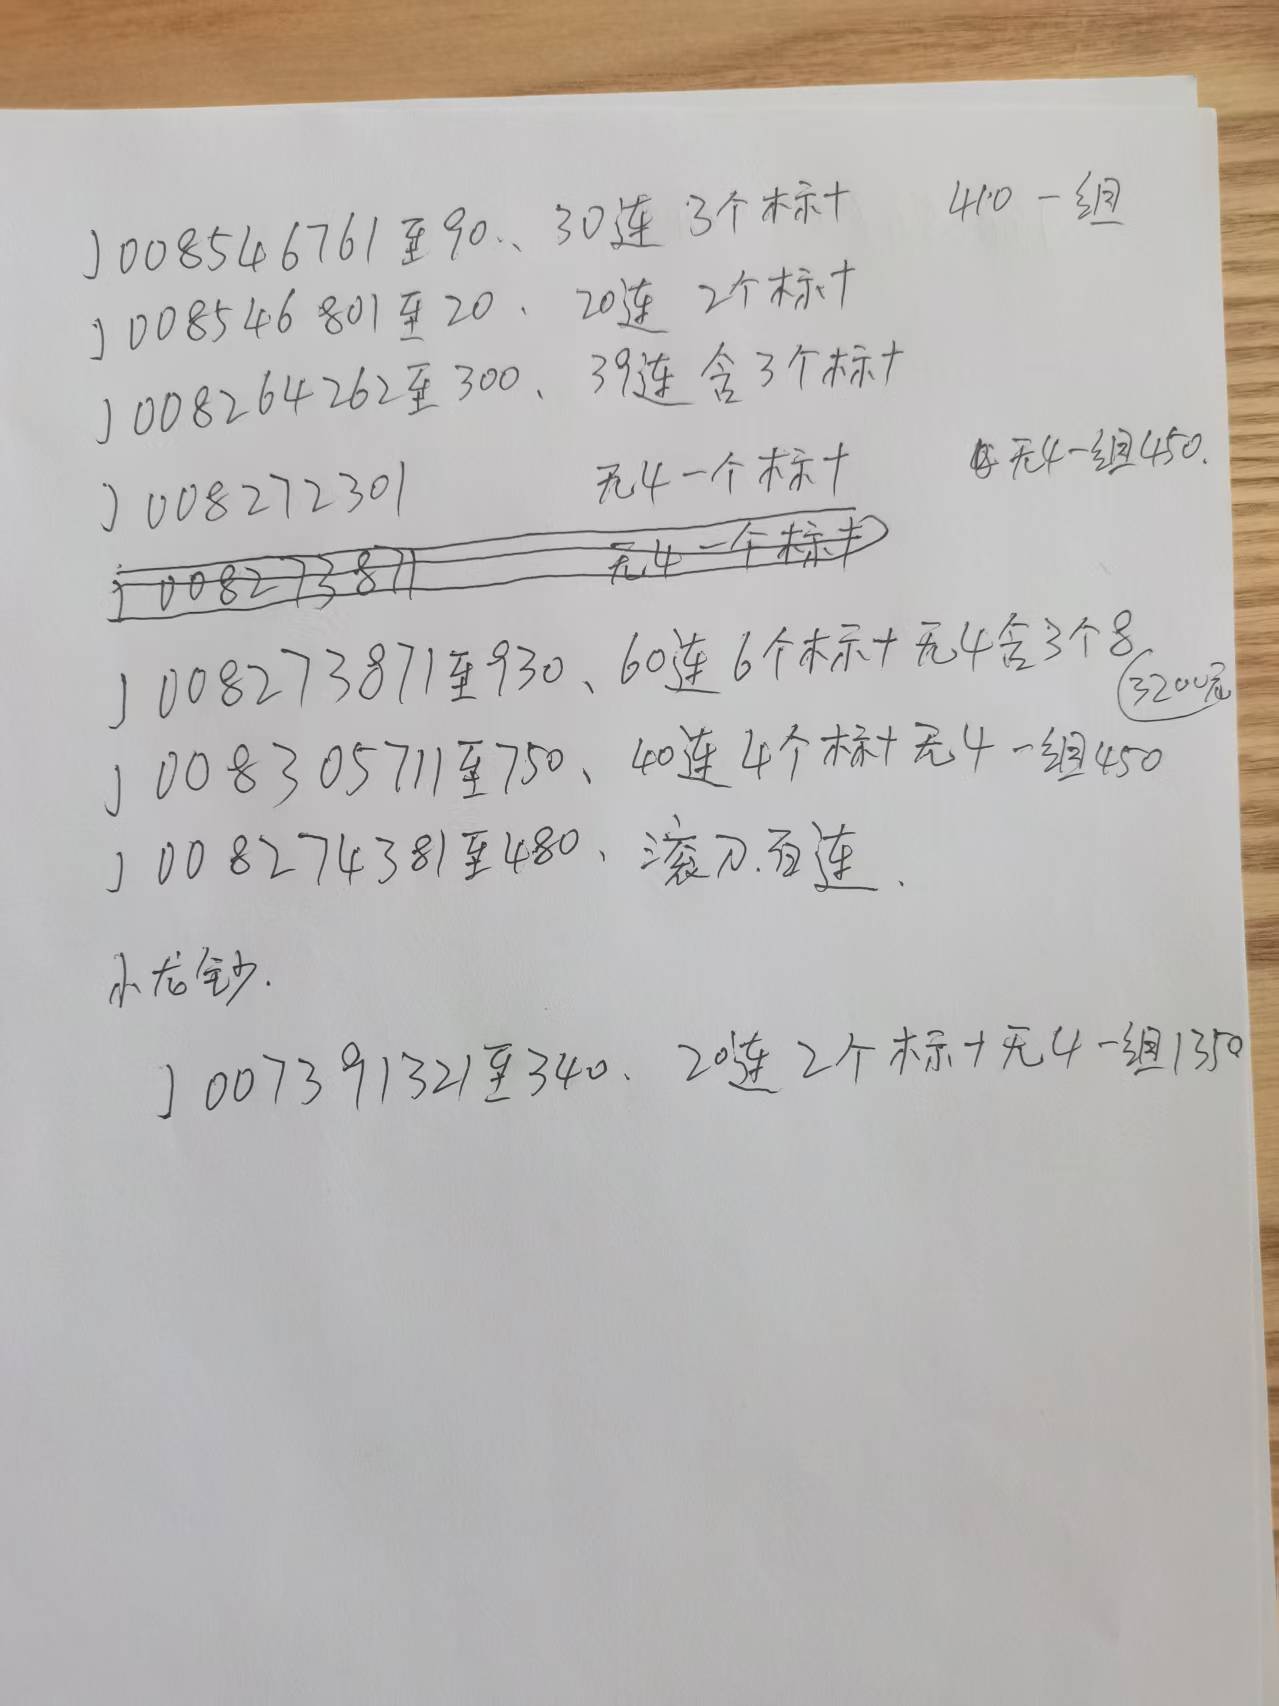 J008546761至90、30连 3个标十 410一组
J008546801至20、20连 2个标十
J008264262至300、39连含3个标十
J008272301 无4一个标十 无4一组450.
J008273871 无4一个标十
J008273871至930、60连6个标十无4含3个8
3200元
J008305711至750、40连4个标十无4一组450
J008274381至480、滚刀.百连.
小龙钞.
J007391321至340、20连2个标十无4一组1350